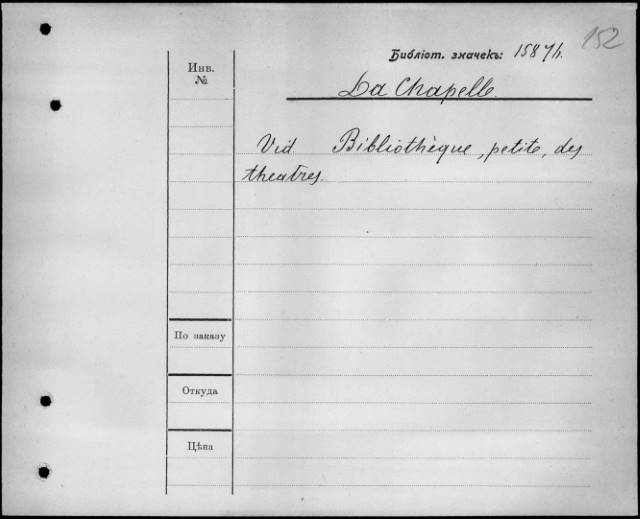 152
Библіот. значекъ: 1587h.
Инв.
№
La Chapelle.
Vid. Bibliothèque, petite, des
theatres.
По заказу
Откуда
Цѣна